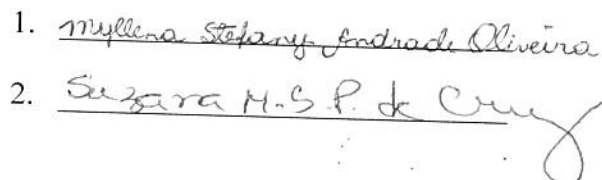 1. Myllena Stefany Andrade Oliveira
2. Suzara M. S. P. de Cruz